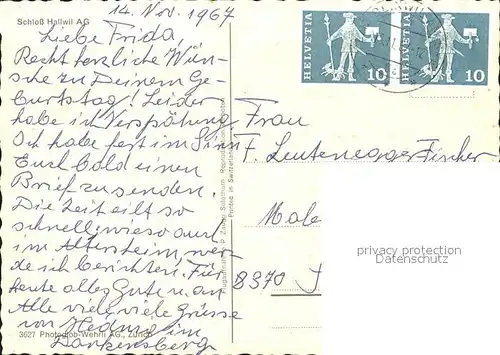 Schloß Hallwil AG
14. Nov. 1967
Liebe Frida,
Recht herzliche Wün-
sche zu Deinem Ge-
burtstag! Leider
habe ich Verspätung
Ich habe fest im Sinn
Euch bald einen
Brief zu senden.
Die Zeit eilt so
schnell, wieso auch
im Altersheim, wer-
de ich berichten. Für
heute alles Gute u. an
Alle viele, viele Grüsse
von Hedwig im
3627 Photoglob-Wehrli AG., Zürich
Printed in Switzerland
HELVETIA 10
HELVETIA 10
Frau
F. Leutenegger-Fischer
Male
8370
privacy protection
Datenschutz